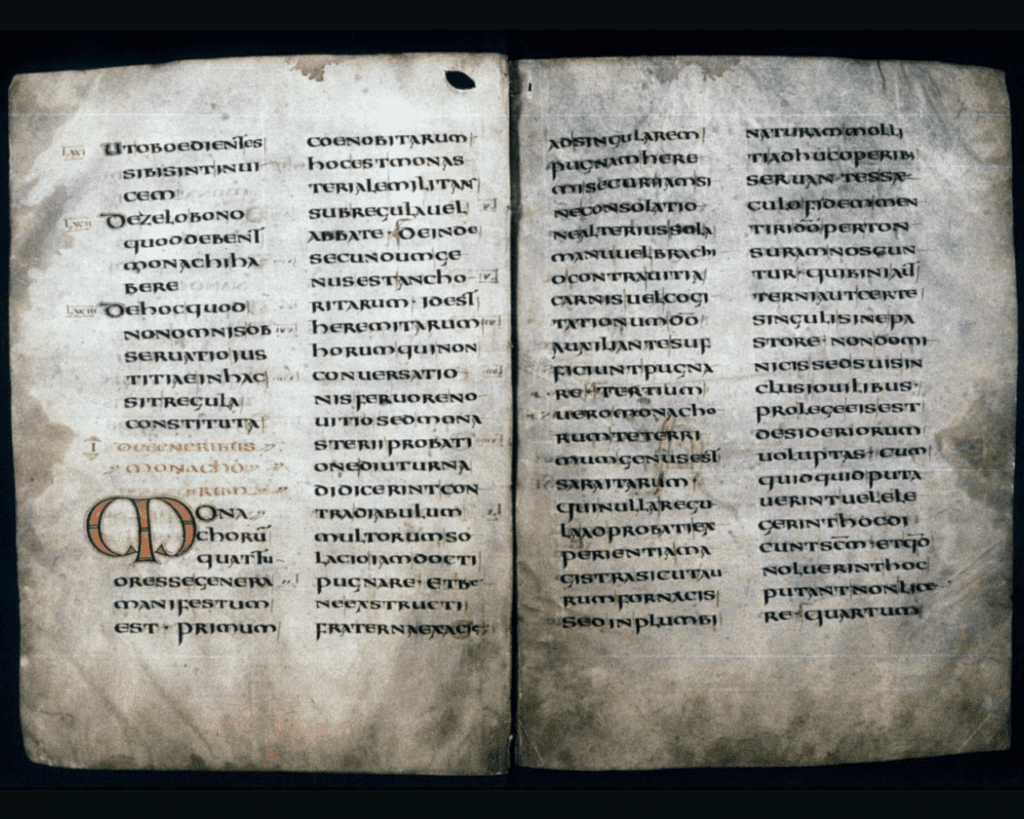 UTOBOEDIENTES
SIBISINTINUI
CEM
DEZELOBONO
QUODDEBENT
MONACHIHA
BERE
DEHOCQUOD
NONOMNISOB
SERUATIOIUS
TITIAEINHAC
SITREGULA
CONSTITUTA
I DEGENERIBUS
MONACHO
RUM
MONA
CHORŪ
QUATTU
ORESSEGENERA
MANIFESTUM
EST · PRIMUM
COENOBITARUM
HOCESTMONAS
TERIALEMILITANS
SUBREGULAUEL
ABBATE · DEINDE
SECUNDUMGE
NUSESTANCHO
RITARUM · IDEST
HEREMITARUM
HORUMQUINON
CONUERSATIO
NISFERUORENO
UITIOSEDMONA
STERIIPROBATI
ONEDIUTURNA
DIDICERINTCON
TRADIABULUM
MULTORUMSO
LACIOIAMDOCTI
PUGNARE · ETBE
NEEXSTRUCTI
FRATERNAEXACIE
ADSINGULAREM
PUGNAMHERE
MISECURIIAMSI
NECONSOLATIO
NEALTERIUSSOLA
MANUUELBRACHI
OCONTRAUITIA
CARNISUELCOGI
TATIONUMDŌ
AUXILIANTESUF
FICIUNTPUGNA
RE · TERTIUM
UEROMONACHO
RUMTETERRI
MUMGENUSEST
SARAITARUM
QUINULLAREGU
LAADPROBATIEX
PERIENTIAMA
GISTRASICUTAU
RUMFORNACIS
SEDINPLUMBI
NATURAMMOLLI
TIADHUCOPERIB;
SERUANTESSAE
CULOFIDEMMEN
TIRIDŌPERTON
SURAMNOSCUN
TUR · QUIBINIAUT
TERNIAUTCERTE
SINGULISINEPA
STORE · NONDOMI
NICISSEDSUISIN
CLUSIOUILIBUS ·
PROLEGEEISEST
DESIDERIORUM
UOLUPTAS · CUM
QUIDQUIDPUTA
UERINTUELELE
GERINTHOCDI
CUNTSC̄M · ETQD̄
NOLUERINTHOC
PUTANTNONLICE
RE · QUARTUM